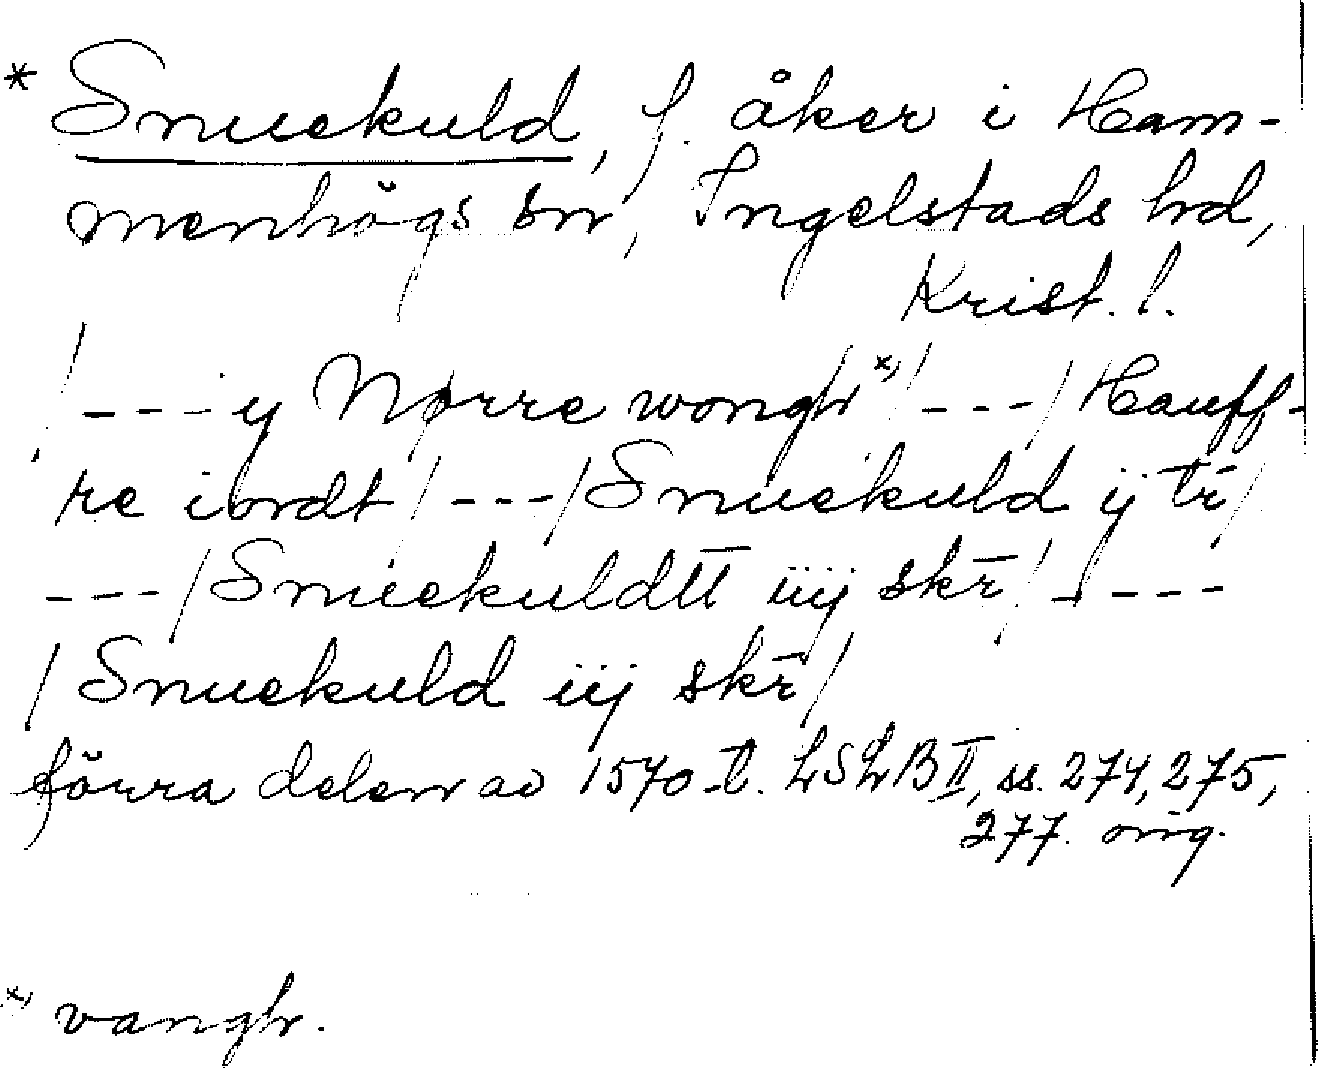 * Snuekuld, f. åker i Ham-
menhögs sn, Ingelstads hd,
Krist. l.
/---y Nørre wongh*) /---/ Hauff-
re iordt /---/ Snuekuld ij tr̄ /
---/ Snuekuldtt iiij skr̄ /----
/ Snuekuld iij skr̄ /
förra delen av 1570-t. LSLB II, ss. 274, 275,
277. orig.
*) vangh.